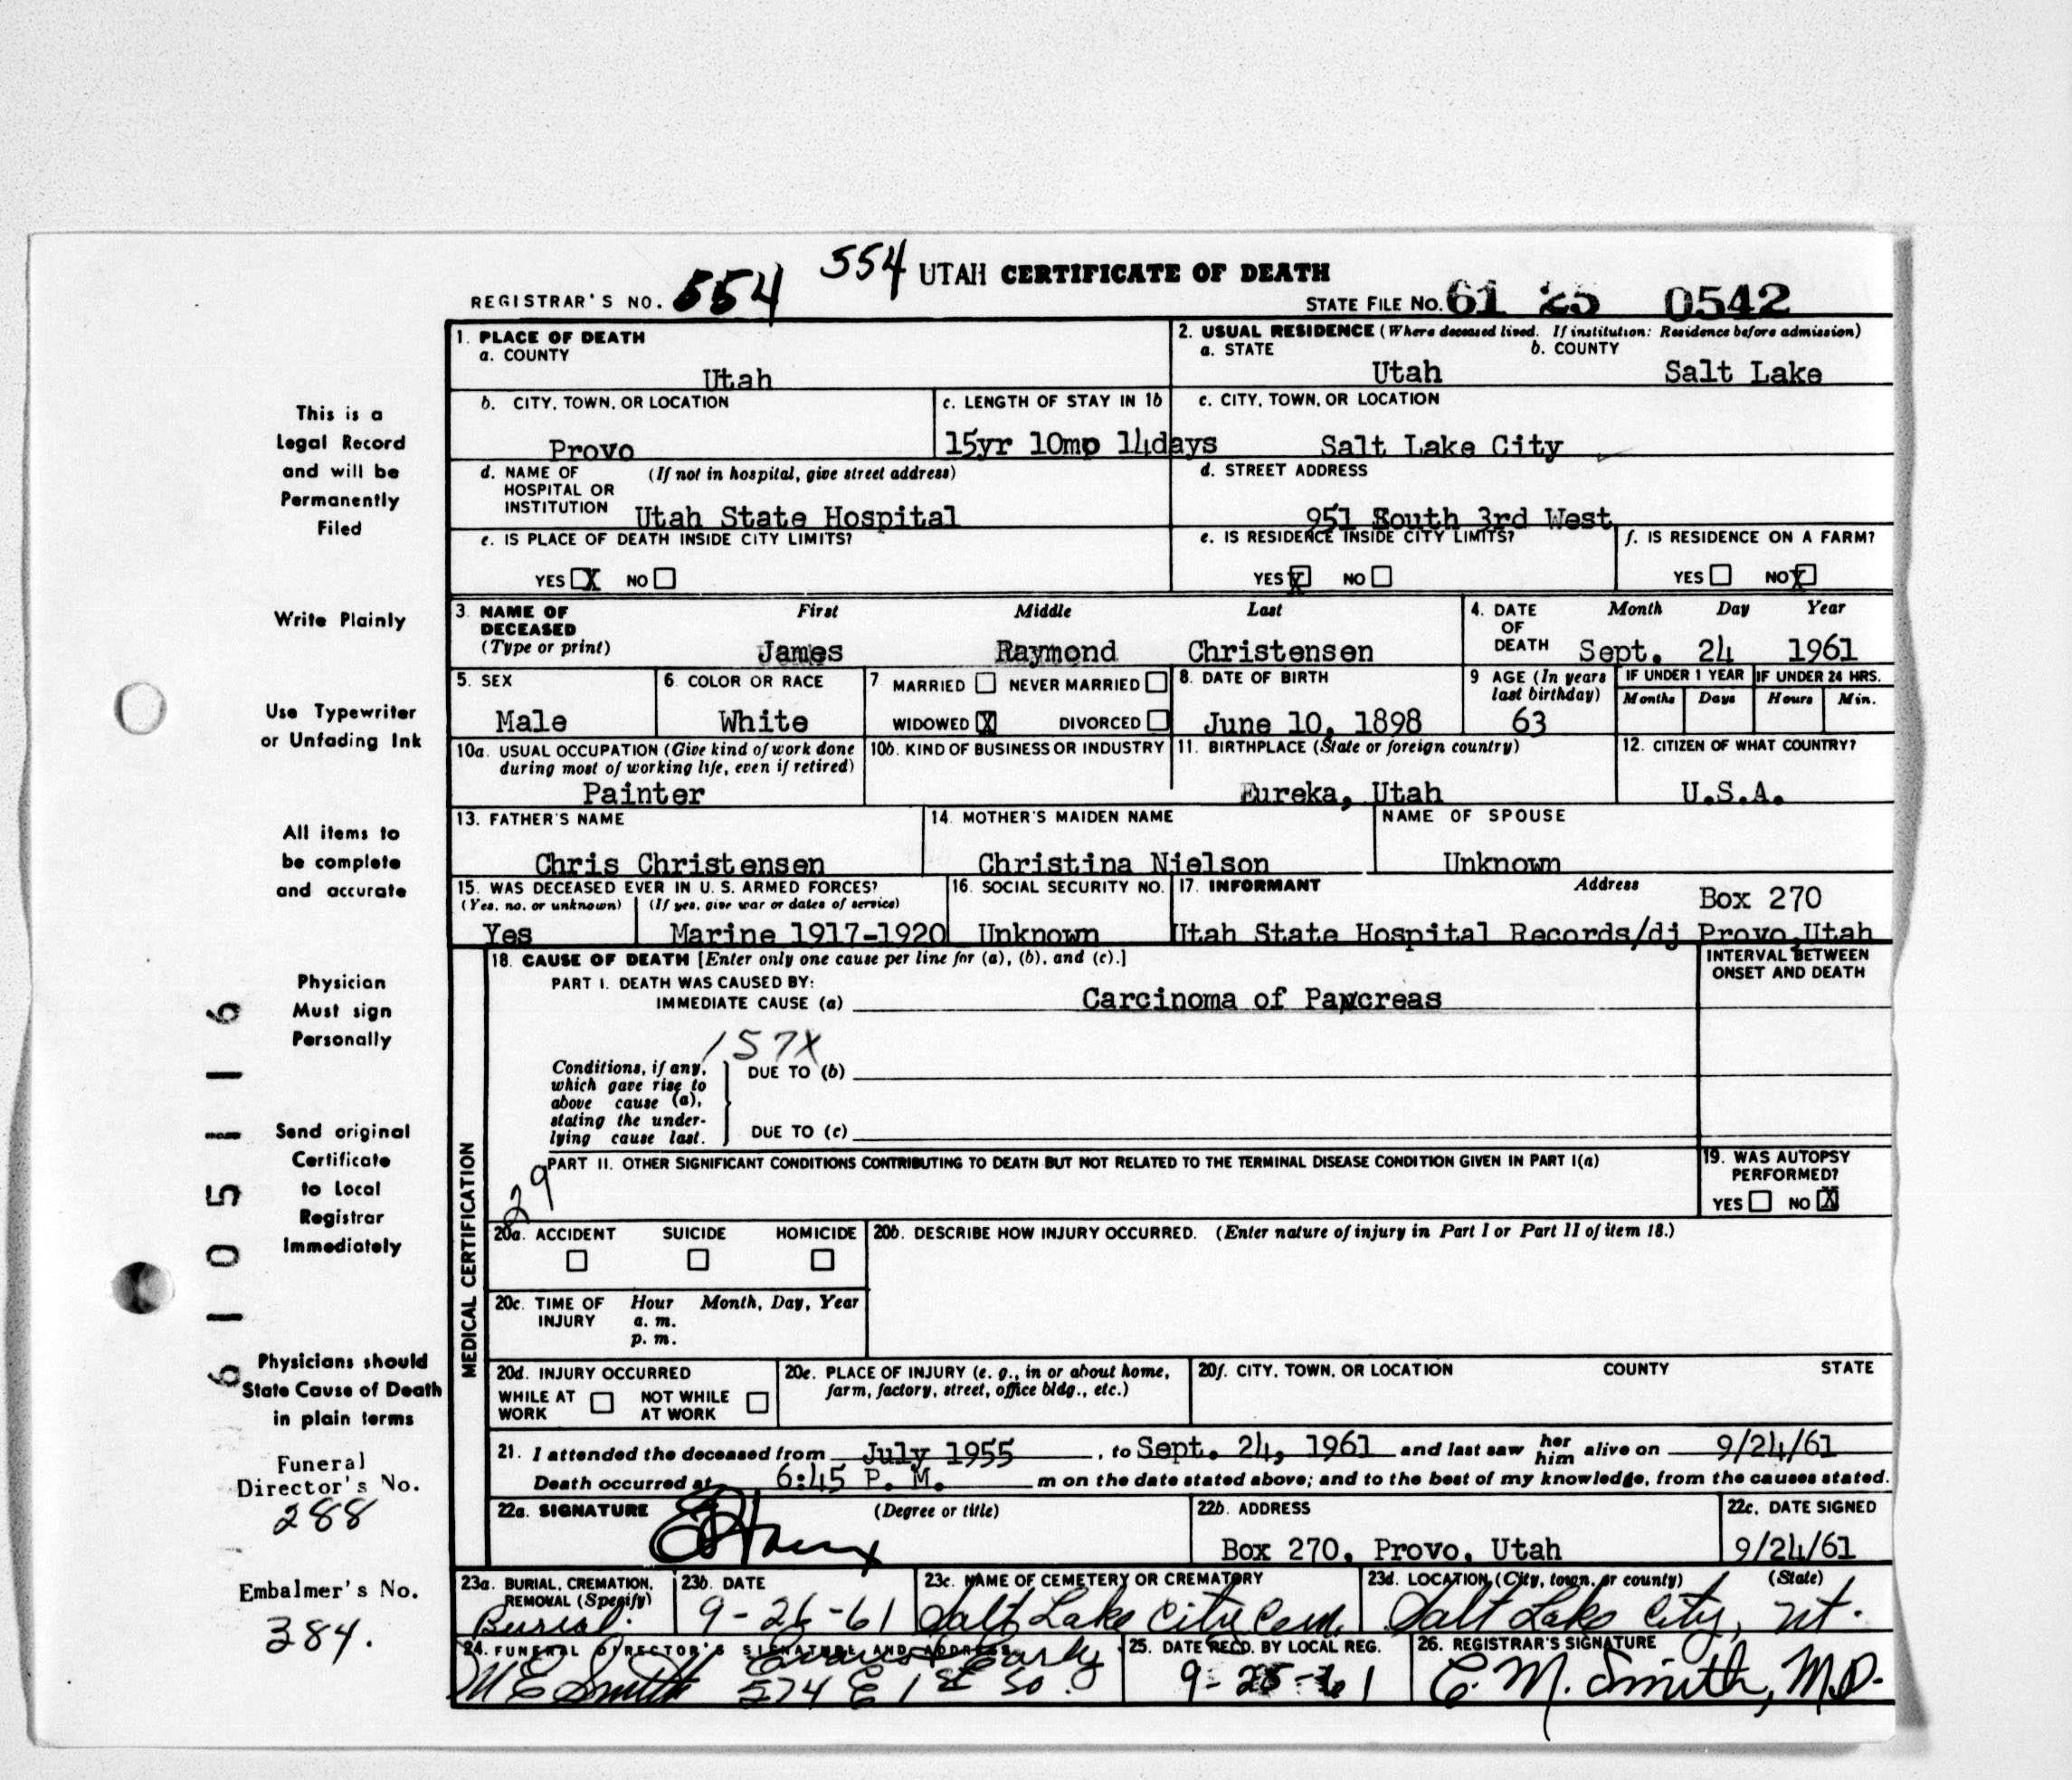 554 UTAH CERTIFICATE OF DEATH
REGISTRAR'S NO. 554
STATE FILE NO. 61 25 0542
This is a
Legal Record
and will be
Permanently
Filed
Write Plainly
Use Typewriter
or Unfading Ink
All items to
be complete
and accurate
Physician
Must sign
Personally
Send original
Certificate
to Local
Registrar
Immediately
Physicians should
State Cause of Death
in plain terms
Funeral
Director's No.
288
Embalmer's No.
384.
6105116
1. PLACE OF DEATH
a. COUNTY
Utah
2. USUAL RESIDENCE (Where deceased lived. If institution: Residence before admission)
a. STATE b. COUNTY
Utah Salt Lake
b. CITY, TOWN, OR LOCATION
Provo
c. LENGTH OF STAY IN 1b
15yr 10mo 14days
c. CITY, TOWN, OR LOCATION
Salt Lake City
d. NAME OF (If not in hospital, give street address)
HOSPITAL OR
INSTITUTION Utah State Hospital
d. STREET ADDRESS
951 South 3rd West
e. IS PLACE OF DEATH INSIDE CITY LIMITS?
YES X NO
e. IS RESIDENCE INSIDE CITY LIMITS?
YES X NO
f. IS RESIDENCE ON A FARM?
YES NO X
3. NAME OF First Middle Last
DECEASED
(Type or print) James Raymond Christensen
4. DATE Month Day Year
OF
DEATH Sept. 24 1961
5. SEX
Male
6. COLOR OR RACE
White
7 MARRIED NEVER MARRIED
WIDOWED X DIVORCED
8. DATE OF BIRTH
June 10, 1898
9 AGE (In years
last birthday)
63
IF UNDER 1 YEAR IF UNDER 24 HRS.
Months Days Hours Min.
10a. USUAL OCCUPATION (Give kind of work done
during most of working life, even if retired)
Painter
10b. KIND OF BUSINESS OR INDUSTRY
11. BIRTHPLACE (State or foreign country)
Eureka, Utah
12. CITIZEN OF WHAT COUNTRY?
U.S.A.
13. FATHER'S NAME
Chris Christensen
14. MOTHER'S MAIDEN NAME
Christina Nielson
NAME OF SPOUSE
Unknown
15. WAS DECEASED EVER IN U. S. ARMED FORCES?
(Yes, no, or unknown) (If yes, give war or dates of service)
Yes Marine 1917-1920
16. SOCIAL SECURITY NO.
Unknown
17. INFORMANT Address
Box 270
Utah State Hospital Records/dj Provo,Utah
MEDICAL CERTIFICATION
18. CAUSE OF DEATH [Enter only one cause per line for (a), (b), and (c).]
INTERVAL BETWEEN
ONSET AND DEATH
PART I. DEATH WAS CAUSED BY:
IMMEDIATE CAUSE (a) Carcinoma of Pancreas
157X
Conditions, if any,
which gave rise to
above cause (a),
stating the under-
lying cause last.
DUE TO (b)
DUE TO (c)
PART II. OTHER SIGNIFICANT CONDITIONS CONTRIBUTING TO DEATH BUT NOT RELATED TO THE TERMINAL DISEASE CONDITION GIVEN IN PART I(a)
29
19. WAS AUTOPSY
PERFORMED?
YES NO X
20a. ACCIDENT SUICIDE HOMICIDE
20b. DESCRIBE HOW INJURY OCCURRED. (Enter nature of injury in Part I or Part II of item 18.)
20c. TIME OF Hour Month, Day, Year
INJURY a. m.
p. m.
20d. INJURY OCCURRED
WHILE AT WORK NOT WHILE AT WORK
20e. PLACE OF INJURY (e. g., in or about home,
farm, factory, street, office bldg., etc.)
20f. CITY, TOWN, OR LOCATION COUNTY STATE
21. I attended the deceased from July 1955, to Sept. 24, 1961 and last saw her him alive on 9/24/61
Death occurred at 6:45 P. M. m on the date stated above; and to the best of my knowledge, from the causes stated.
22a. SIGNATURE (Degree or title)
22b. ADDRESS
Box 270, Provo, Utah
22c. DATE SIGNED
9/24/61
23a. BURIAL, CREMATION,
REMOVAL (Specify)
Burial.
23b. DATE
9-26-61
23c. NAME OF CEMETERY OR CREMATORY
Salt Lake City Cem.
23d. LOCATION (City, town, or county) (State)
Salt Lake City, Ut.
24. FUNERAL DIRECTOR'S SIGNATURE AND ADDRESS
Evans & Early
M E Smith 574 E 1st So.
25. DATE RECD. BY LOCAL REG.
9-25-61
26. REGISTRAR'S SIGNATURE
C. M. Smith, M.D.